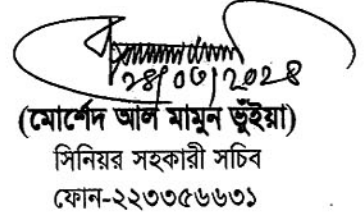 ২৪/০৩/২০২৪
(মোর্শেদ আল মামুন ভূঁইয়া)
সিনিয়র সহকারী সচিব
ফোন-২২৩৩৫৬৬৩১